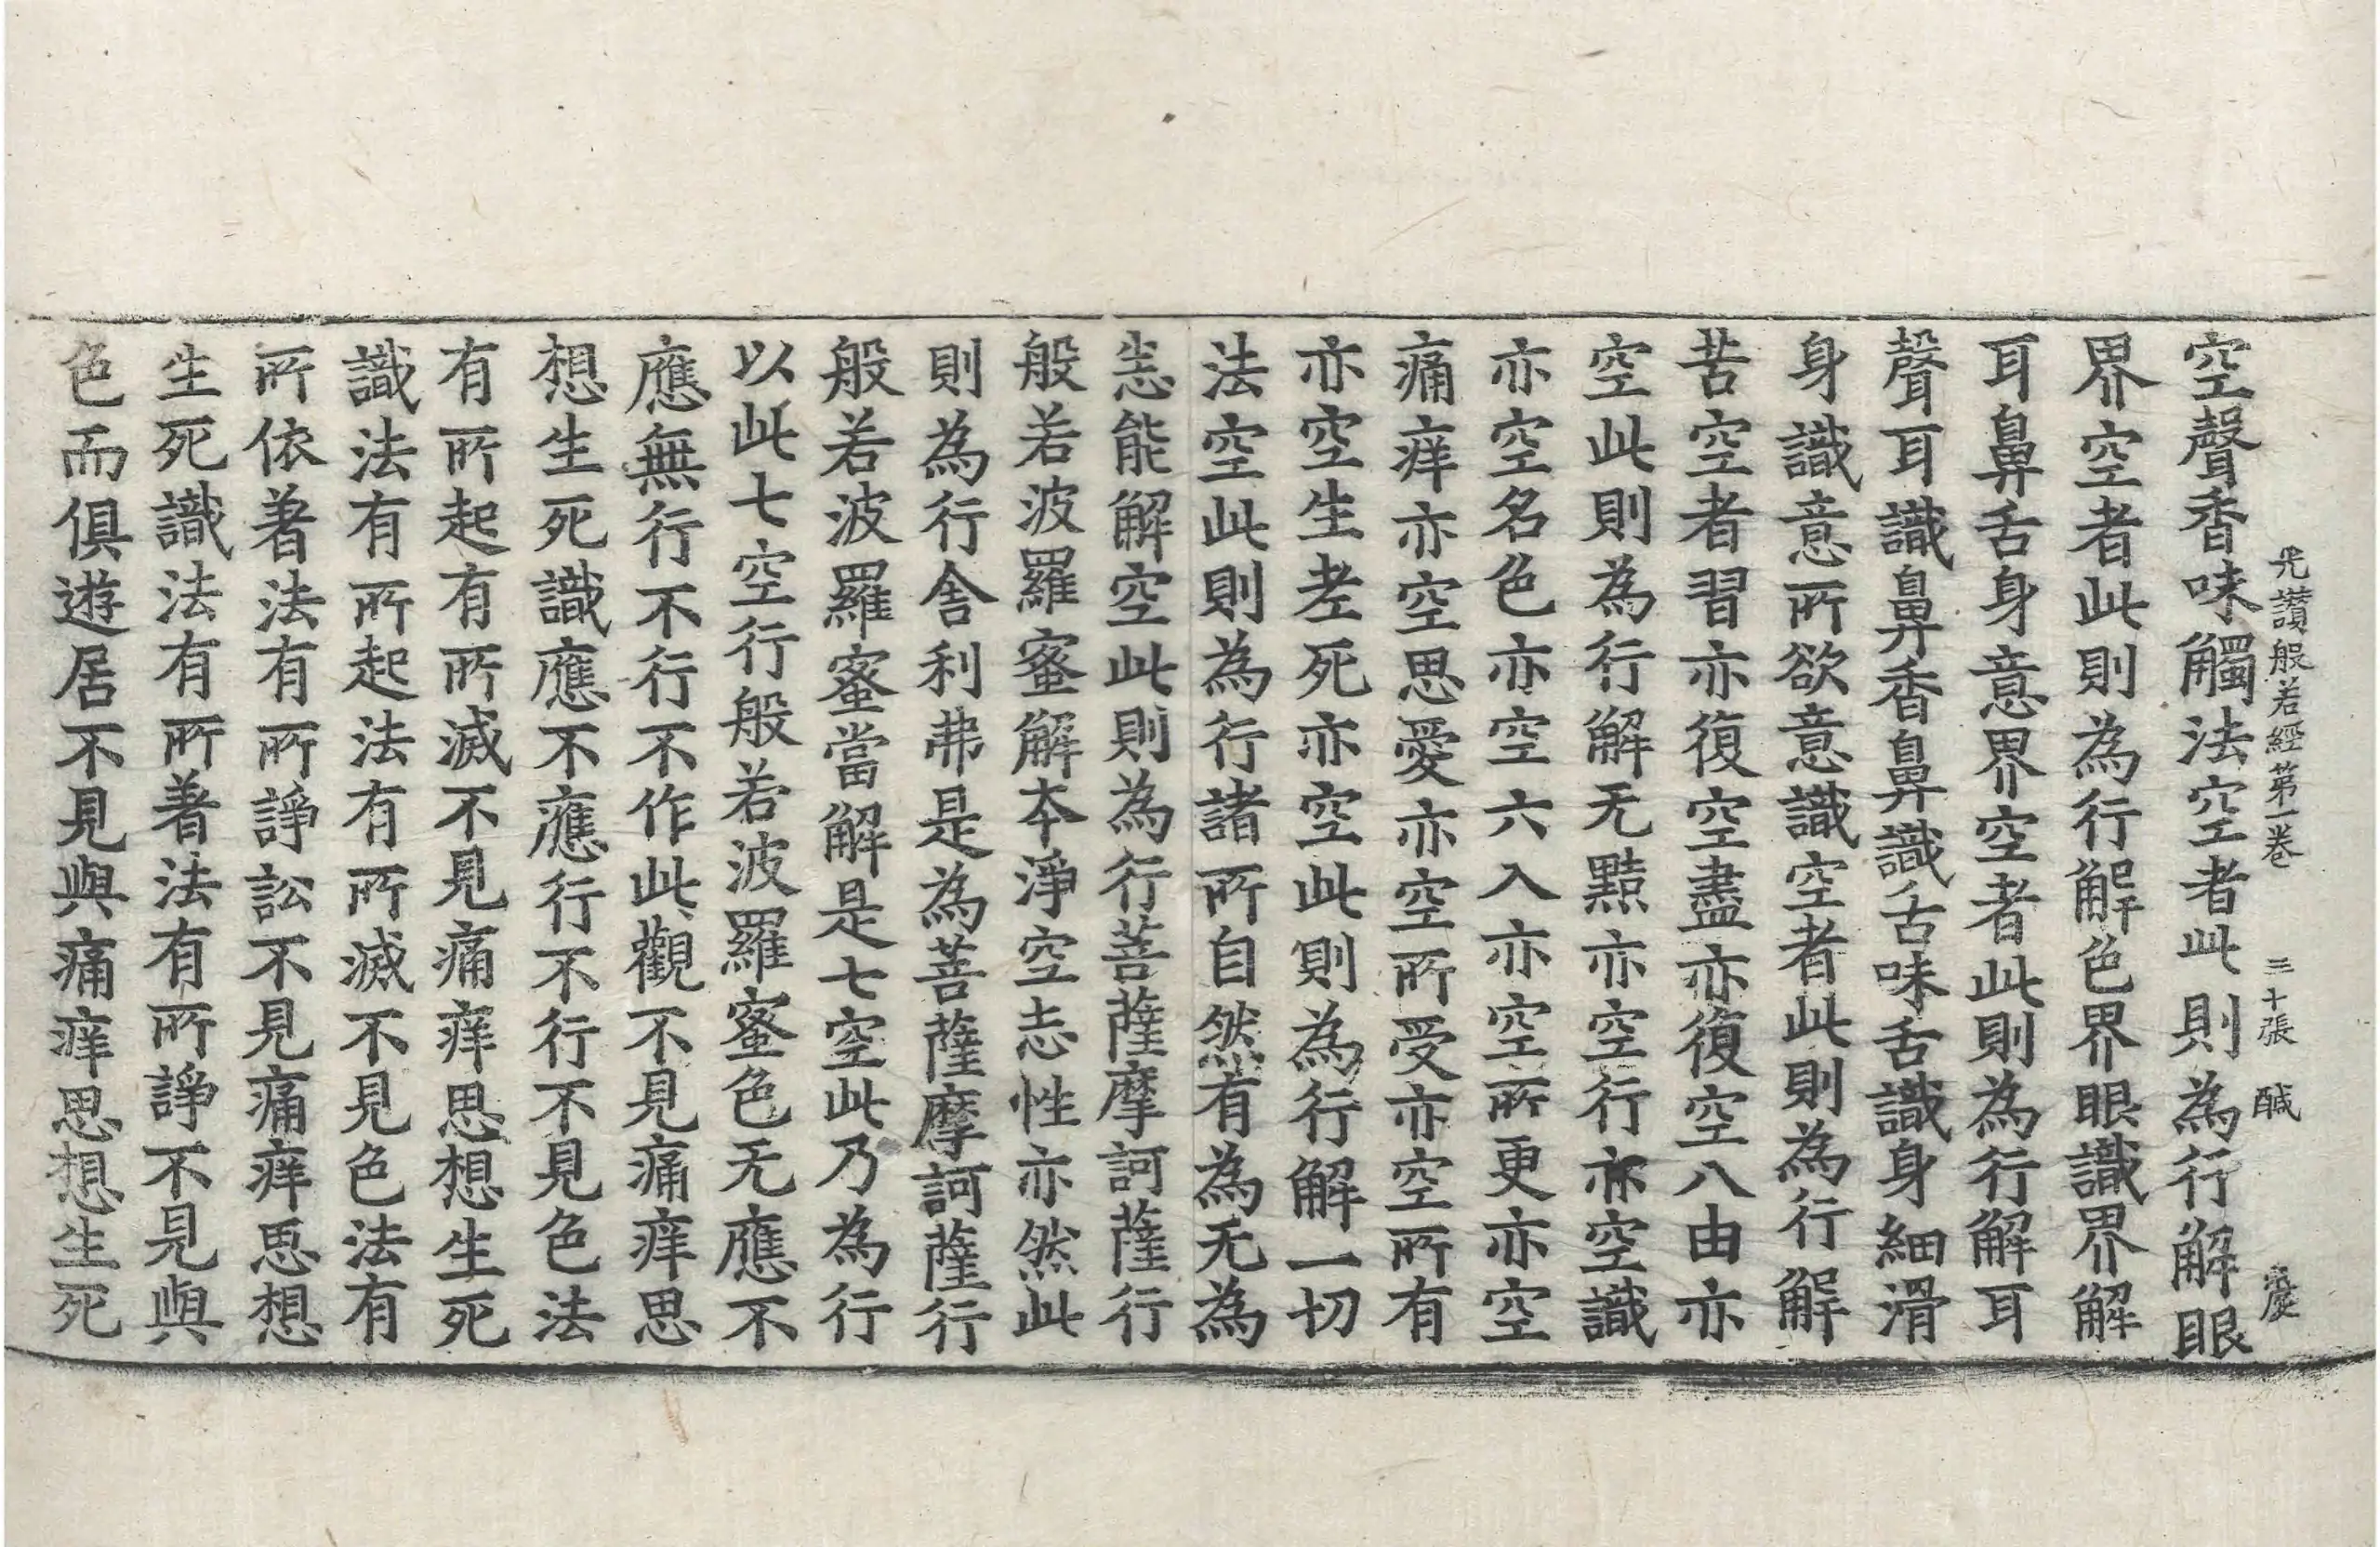 光讃般若經第一卷 三十張 醎 慶
空聲香味觸法空者此則為行解眼
界空者此則為行解色界眼識界解
耳鼻舌身意界空者此則為行解耳
聲耳識鼻香鼻識舌味舌識身細滑
身識意所欲意識空者此則為行解
苦空者習亦復空盡亦復空八由亦
空此則為行解无黠亦空行亦空識
亦空名色亦空六入亦空所更亦空
痛痒亦空思愛亦空所受亦空所有
亦空生老死亦空此則為行解一切
法空此則為行諸所自然有為无為
悉能解空此則為行菩薩摩訶薩行
般若波羅蜜解本淨空志性亦然此
則為行舍利弗是為菩薩摩訶薩行
般若波羅蜜當解是七空此乃為行
以此七空行般若波羅蜜色无應不
應無行不行不作此觀不見痛痒思
想生死識應不應行不行不見色法
有所起有所滅不見痛痒思想生死
識法有所起法有所滅不見色法有
所依著法有所諍訟不見痛痒思想
生死識法有所著法有所諍不見與
色而俱遊居不見與痛痒思想生死